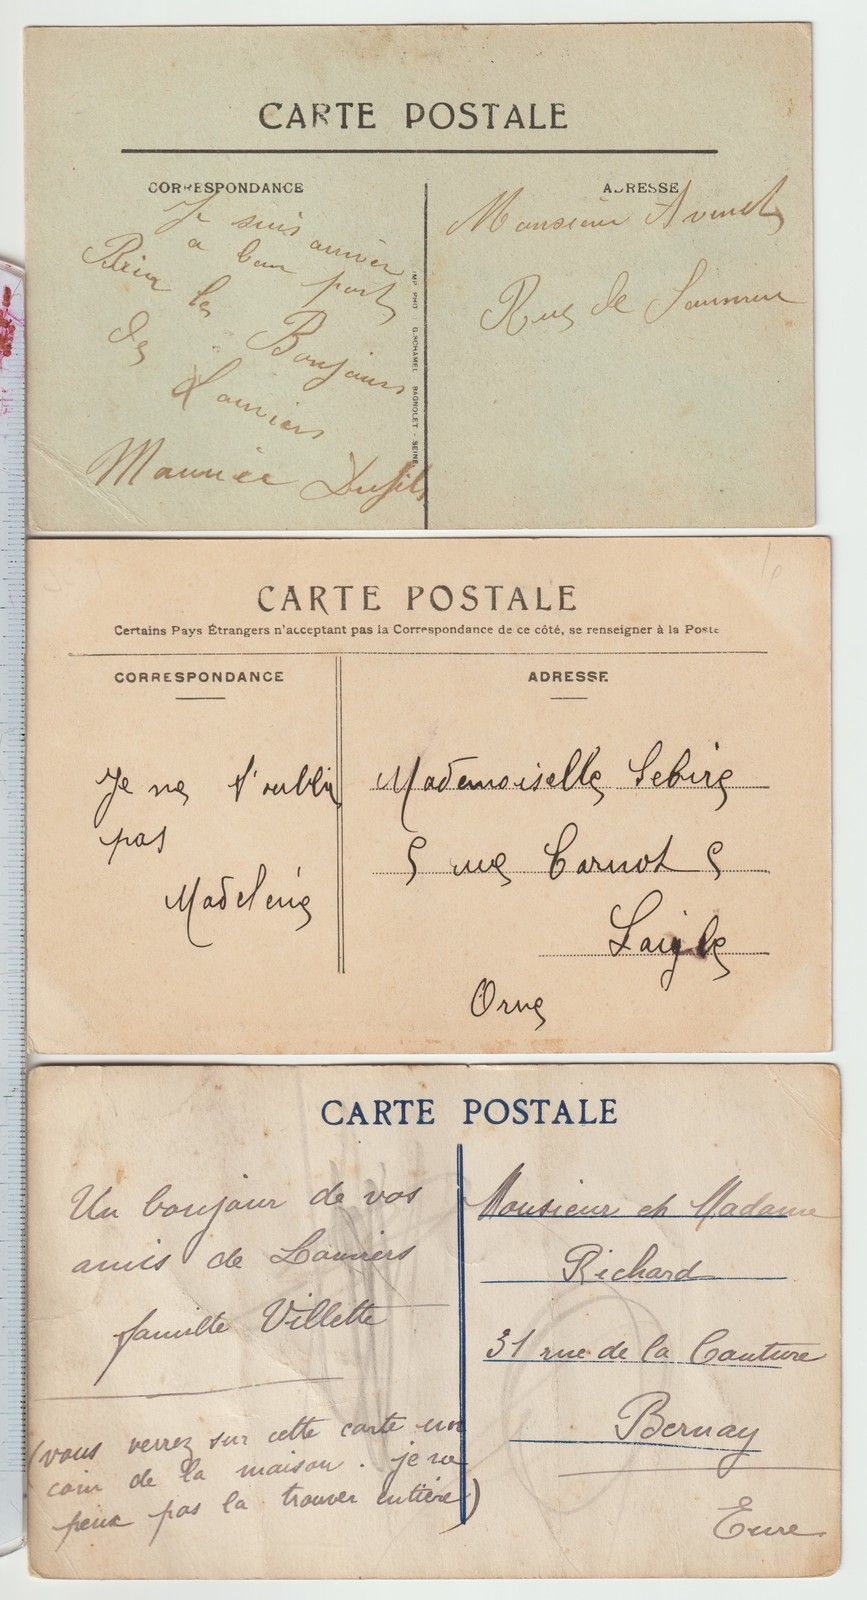 CARTE POSTALE
CORRESPONDANCE
ADRESSE
Je suis arriver
a bon port
Bien le
Bonjours
de
Louviers
Maurice Dufils
IMP. PHO. G. SCHAMEL BAGNOLET - SEINE
Monsieur
Rue de
CARTE POSTALE
Certains Pays Étrangers n'acceptant pas la Correspondance de ce côté, se renseigner à la Poste
CORRESPONDANCE
ADRESSE
Je ne t'oublie
pas
Madeleine
Mademoiselle Lebire
5 rue Carnot 5
Laigle
Orne
CARTE POSTALE
Un bonjour de vos
amis de Louviers
famille Villette
(vous verrez sur cette carte un
coin de la maison. je ne
peux pas la trouver entière)
Monsieur et Madame
Richard
31 rue de la Couture
Bernay
Eure